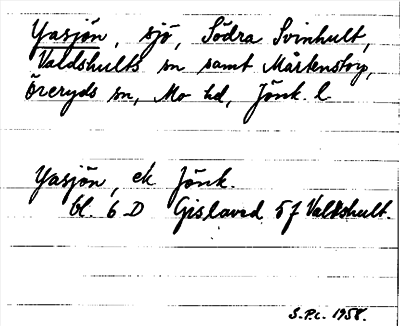 Yasjön, sjö, Södra Svinhult,
Valdshults sn samt Mårtenstorp,
Öreryds sn, Mo hd, Jönk. l.
Yasjön, ek Jönk.
bl. 6 D Gislaved 5f Valdshult.
S.P.c. 1958.